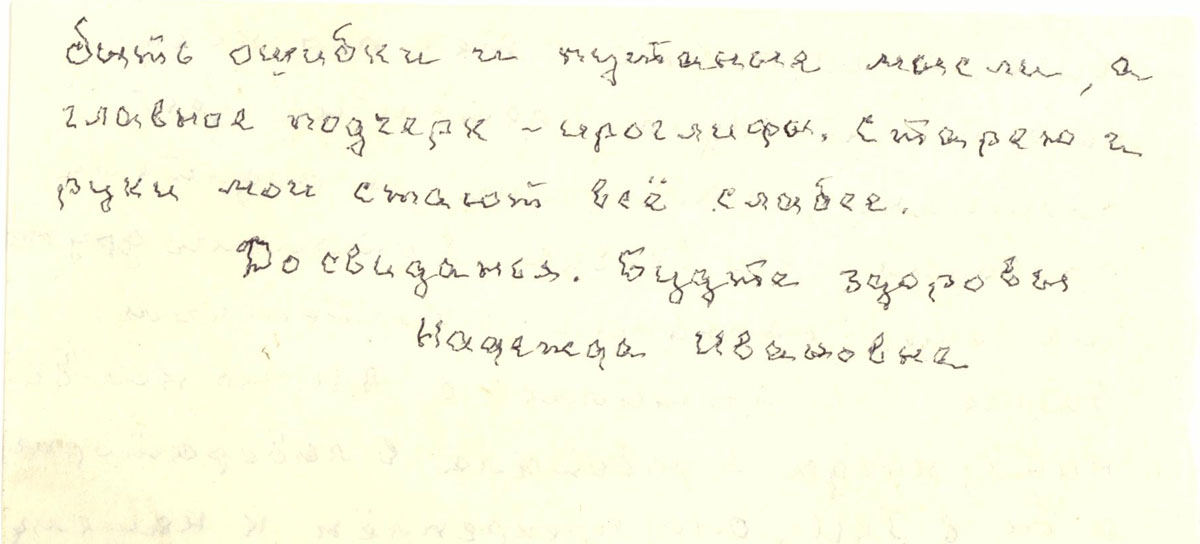 быть ошибки и путаные мысли, а
главное подчерк - ироглифы. Старею и
руки мои стают всё слабее.
До свиданья. Будте здоровы
Надежда Ивановна